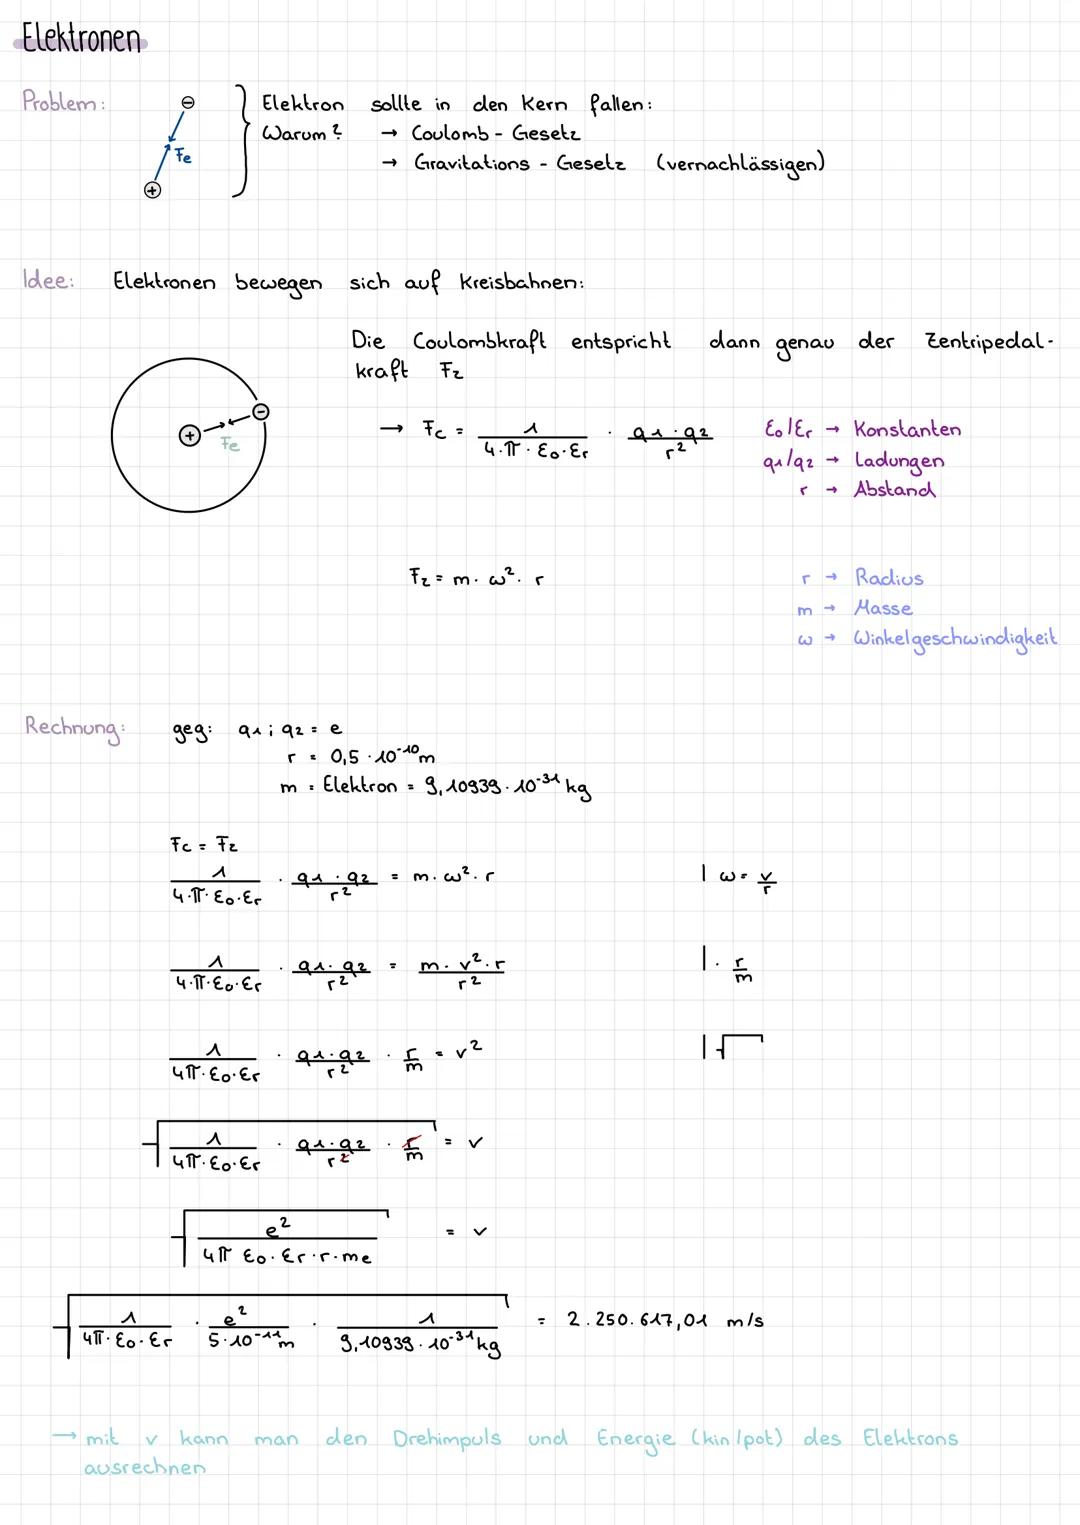 Elektronen
Problem: ⊖ Elektron sollte in den Kern fallen:
Warum? → Coulomb - Gesetz
Fe
→ Gravitations - Gesetz (vernachlässigen)
⊕
Idee: Elektronen bewegen sich auf Kreisbahnen:
Die Coulombkraft entspricht dann genau der Zentripedal-
kraft Fz
⊕ ⊖ Fe
→ Fc = 1/(4·π·ε0·εr) · (q1·q2)/r²
ε0/εr → Konstanten
q1/q2 → Ladungen
r → Abstand
Fz = m·ω²·r
r → Radius
m → Masse
ω → Winkelgeschwindigkeit
Rechnung: geg: q1; q2 = e
r = 0,5·10⁻¹⁰m
m = Elektron = 9,10939·10⁻³¹ kg
Fc = Fz
1/(4·π·ε0·εr) · (q1·q2)/r² = m·ω²·r | ω = v/r
1/(4·π·ε0·εr) · (q1·q2)/r² = (m·v²·r)/r² | · r/m
1/(4π·ε0·εr) · (q1·q2)/r² · r/m = v² | √
√(1/(4π·ε0·εr) · (q1·q2)/r² · r/m) = v
√(e²/(4π ε0·εr·r·me)) = v
√(1/(4π·ε0·εr) · e²/(5·10⁻¹¹m) · 1/(9,10939·10⁻³¹kg)) = 2.250.617,01 m/s
→ mit v kann man den Drehimpuls und Energie (kin/pot) des Elektrons
ausrechnen